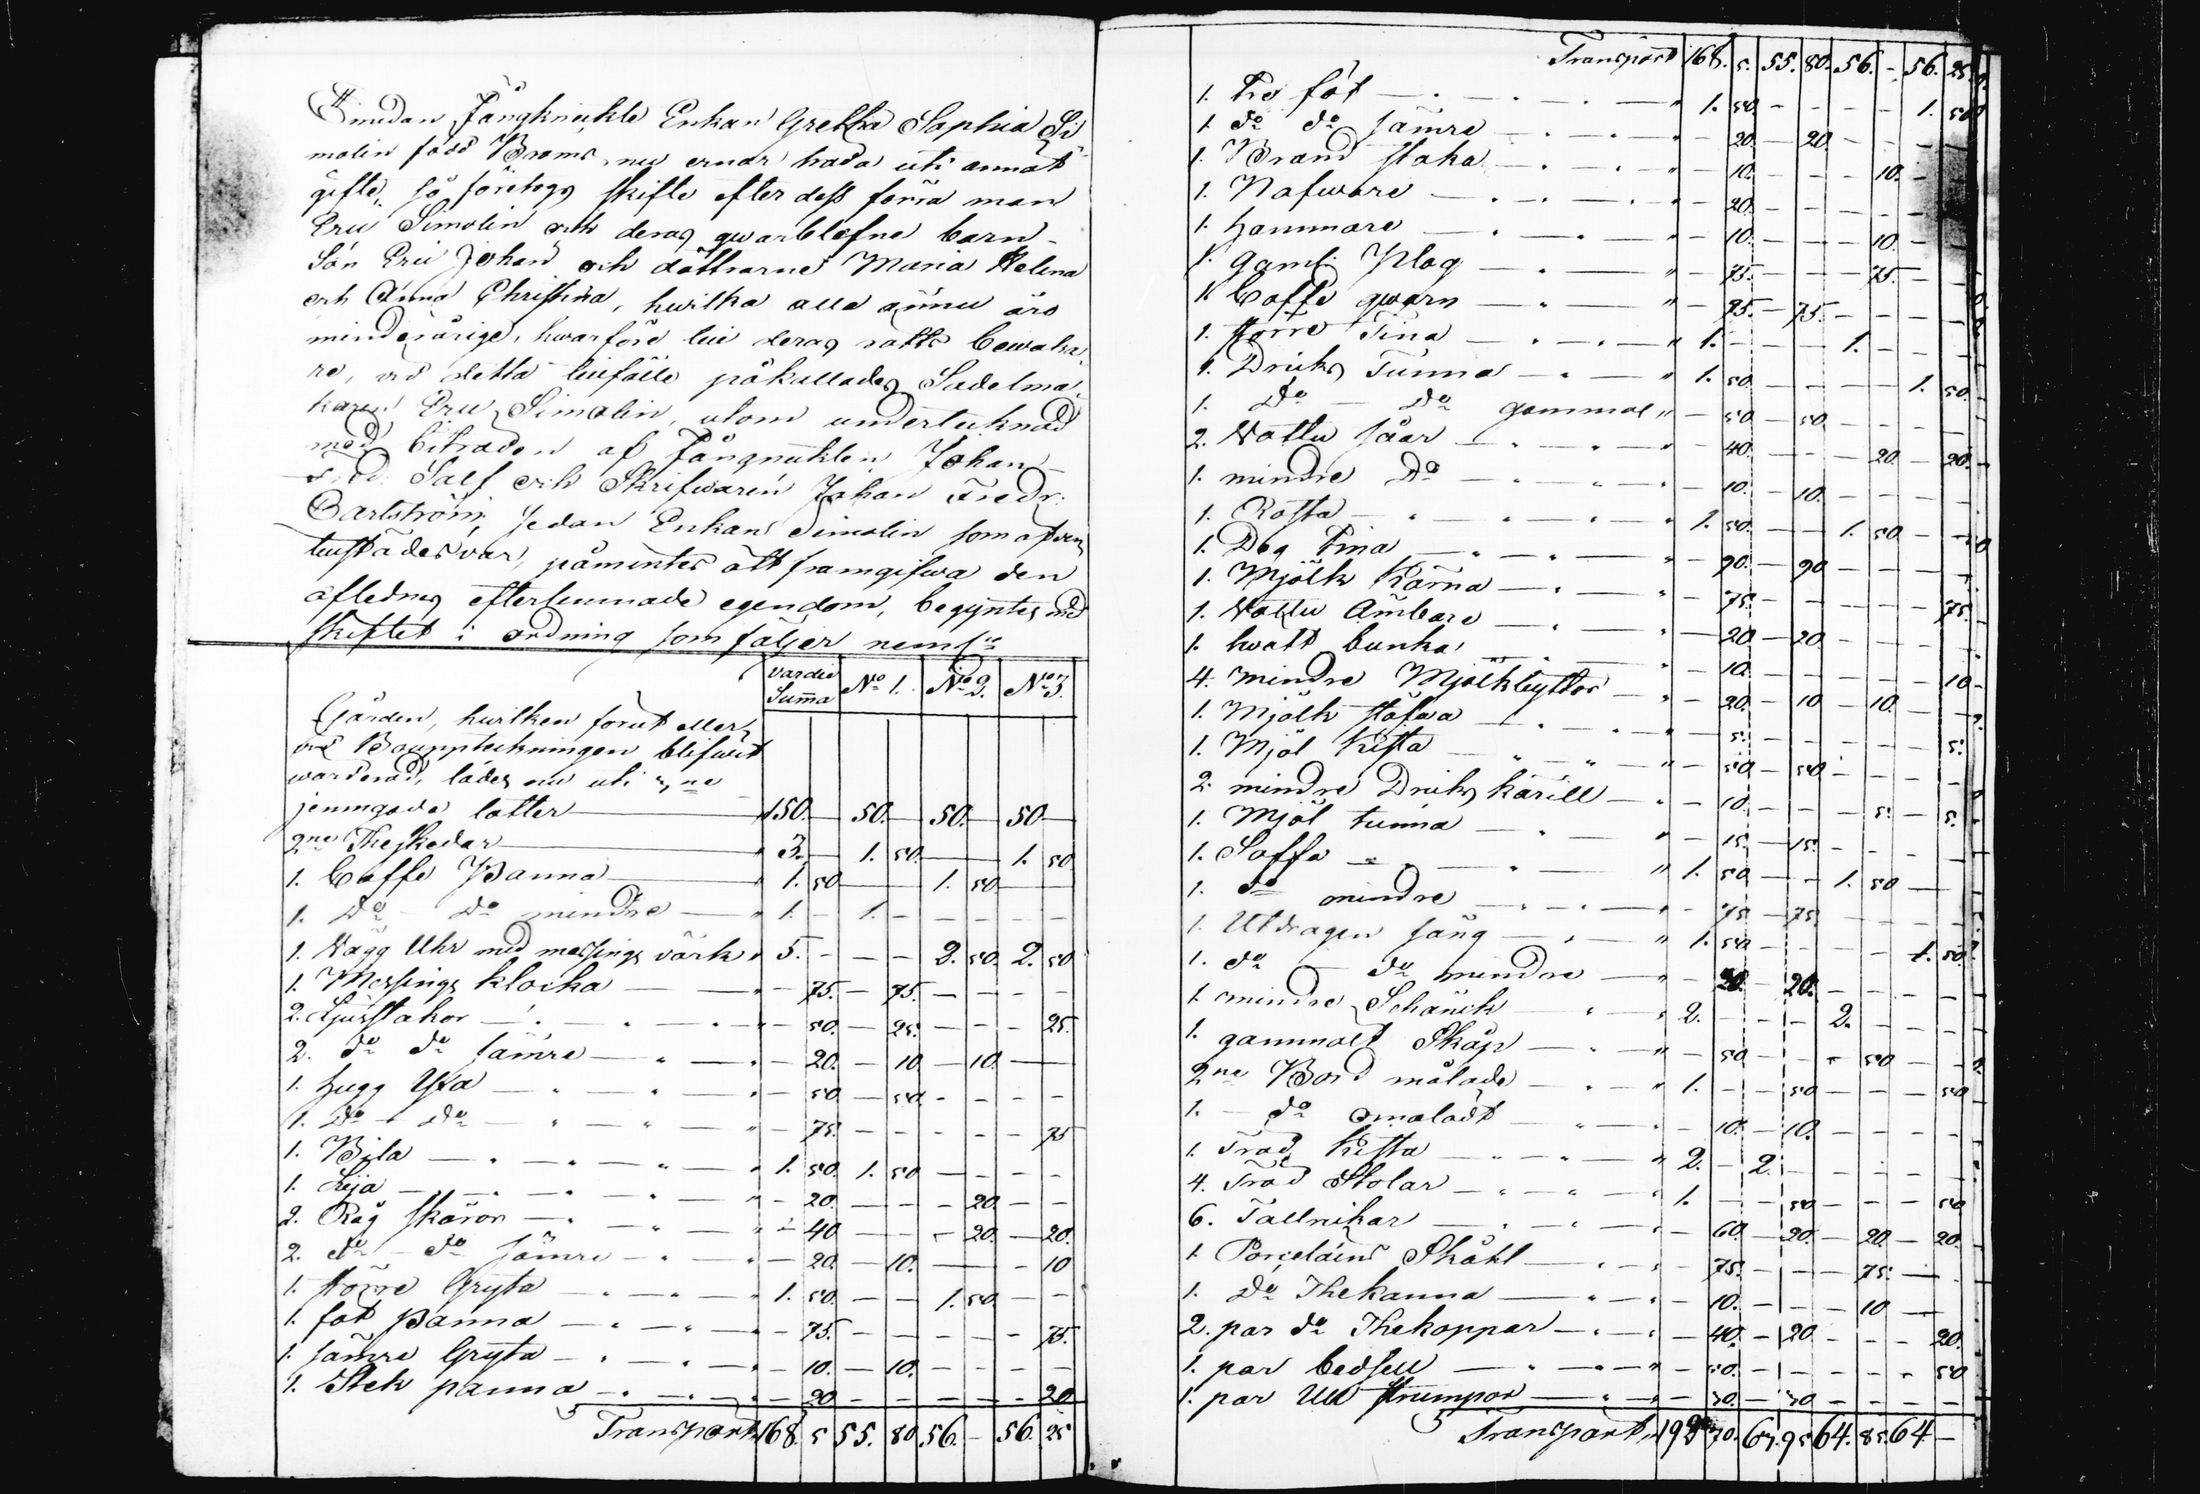 Emedan Fångknickte Enkan Gretha Sophia Si
molin född Broms, nu ernar träda uti annat
gifte, så företogs skifte efter dess förra man
Eric Simolin och deras qwarblefne barn
Son Eric Johan och döttrarne Maria Helena
och Anna Christina, hwilka alla ännu äro
minderårige, hwarföre till deras rätts bewaka
re, wid detta tillfälle påkallades Sadelma
karen Eric Simolin, utom undertecknad
med biträden af Fångknickten Johan
Salf och Skrifwaren Johan Fredr:
Carlström, Sedan Enkan Simolin som äfven
tillstädes var, påmintes att framgifwa den
aflednes efterlemnade egendom, begyntes med
skiftet i ordning som följer neml:n
värdie Summa No 1. No 2. No 3.
Gården, hwilken förut eller
wid Bouppteckningen blifwit
warderad, lades nu uti 3ne
jemngoda lotter 150. 50. 50. 50
2ne Theskedar " 3. – 1. 50. 1. 50
1. Caffe Panna " 1. 50 1. 50
1. Do Do mindre " 1. – 1. –
1. Vägg Uhr med messings värk " 5. – 2. 50. 2. 50
1. Messings klocka – 75. – 75.
2. Ljusstakar – 50. – 25. – 25.
2. do do sämre – 20. – 10 – 10.
1. hugg Yxa – 50 – 50.
1. Do Do – 75. – 75
1. Bila " 1. 50. 1. 50
1. Lija – 20. – 20.
2. Råg skäror – 40 – 20. – 20.
2. do do sämre – 20. – 10. – 10
1. större Gryta " 1. 50. 1. 50.
1. fot panna – 75. – 75.
1. sämre Gryta – 10. – 10.
1. Stek panna – 20 – 20
Transport 168. 5 55. 80 56. – 56. 25
Transport 168. 5. 55. 80. 56. – 56. 25
1. Tre fot " 1. 50. 1. 50
1. do do sämre – 20. – 20.
1. Brand staka – 10. – 10.
1. Nafware – 20.
1. hammare – 10. – 10.
1. gaml: Plog – 75. – 75.
1. Caffe qwarn – 75. – 75.
1. större Tina " 1. – 1.
1. Dricks Tunna " 1. 50. 1. 50.
1. Do Do gammal " – 50 – 50.
2. Vattu såar – 40. – 20. – 20.
1. mindre Do – 10. – 10.
1. Rossa " 1. 50. 1. 50.
1. Deg tina – 90. – 90
1. Mjölk Kärna – 75. – 75.
1. Vattu Ämbare – 20 – 20.
1. hwatt bunka – 10. – 10.
4. mindre Mjölkbyttor – 20. – 10 – 10.
1. Mjölk stäfwa – 5. – 5.
1. Mjöl Kista – 50. – 50.
2. mindre Dricks kärill – 10. – 5. – 5.
1. Mjöl tunna – 15. – 15.
1. Soffa " 1. 50 1. 50
1. do mindre – 75 – 75.
1. Utdragen säng " 1. 50 1. 50
1. do do mindre – 20. – 20.
1. mindre Schänck " 2. – 2.
1. gammalt Skåp – 50 – 50
2ne Bord målade " 1. – 50 – 50
1. do omåladt – 10. – 10.
1. Träd Kista " 2. – 2.
4. Träd Stolar " 1. – 50 – 50
6. Tallrikar – 60. – 20. – 20. – 20.
1. Porcelains Skåhl – 75. – 75.
1. Do Thekanna – 10. – 10
2. par do Thekoppar – 40. – 20. – 20.
1. par betsell – 50. – 50
1. par Ull strumpor – 30. – 30
Transport 192 70. 67. 95 64. 85. 64 –